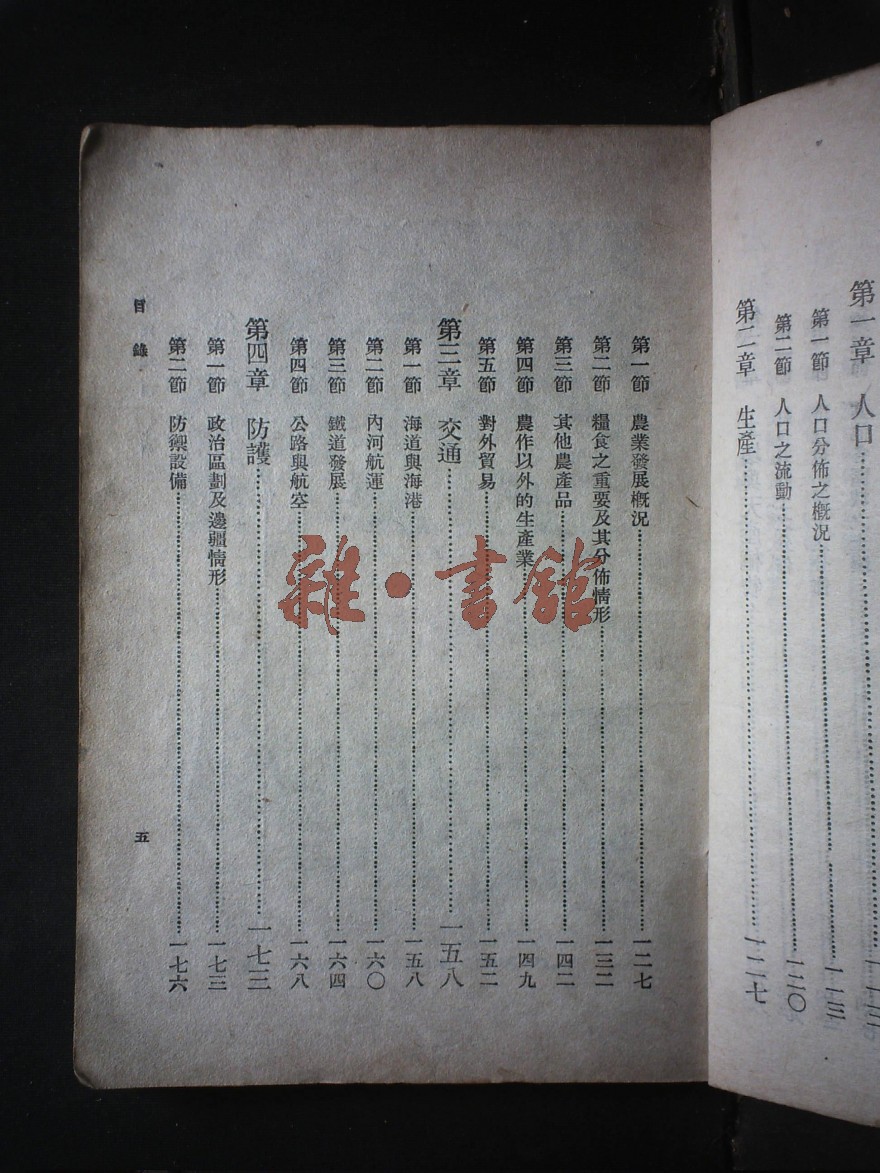 第一章 人口
第一節 人口分佈之概況……一一三
第二節 人口之流動……一二〇
第二章 生產……一二七
第一節 農業發展概況……一二七
第二節 糧食之重要及其分佈情形……一三二
第三節 其他農產品……一四二
第四節 農作以外的生產業……一四九
第五節 對外貿易……一五二
第三章 交通……一五八
第一節 海道與海港……一五八
第二節 內河航運……一六〇
第三節 鐵道發展……一六四
第四節 公路與航空……一六八
第四章 防護……一七三
第一節 政治區劃及邊疆情形……一七三
第二節 防禦設備……一七六
目錄
五
雜·書館